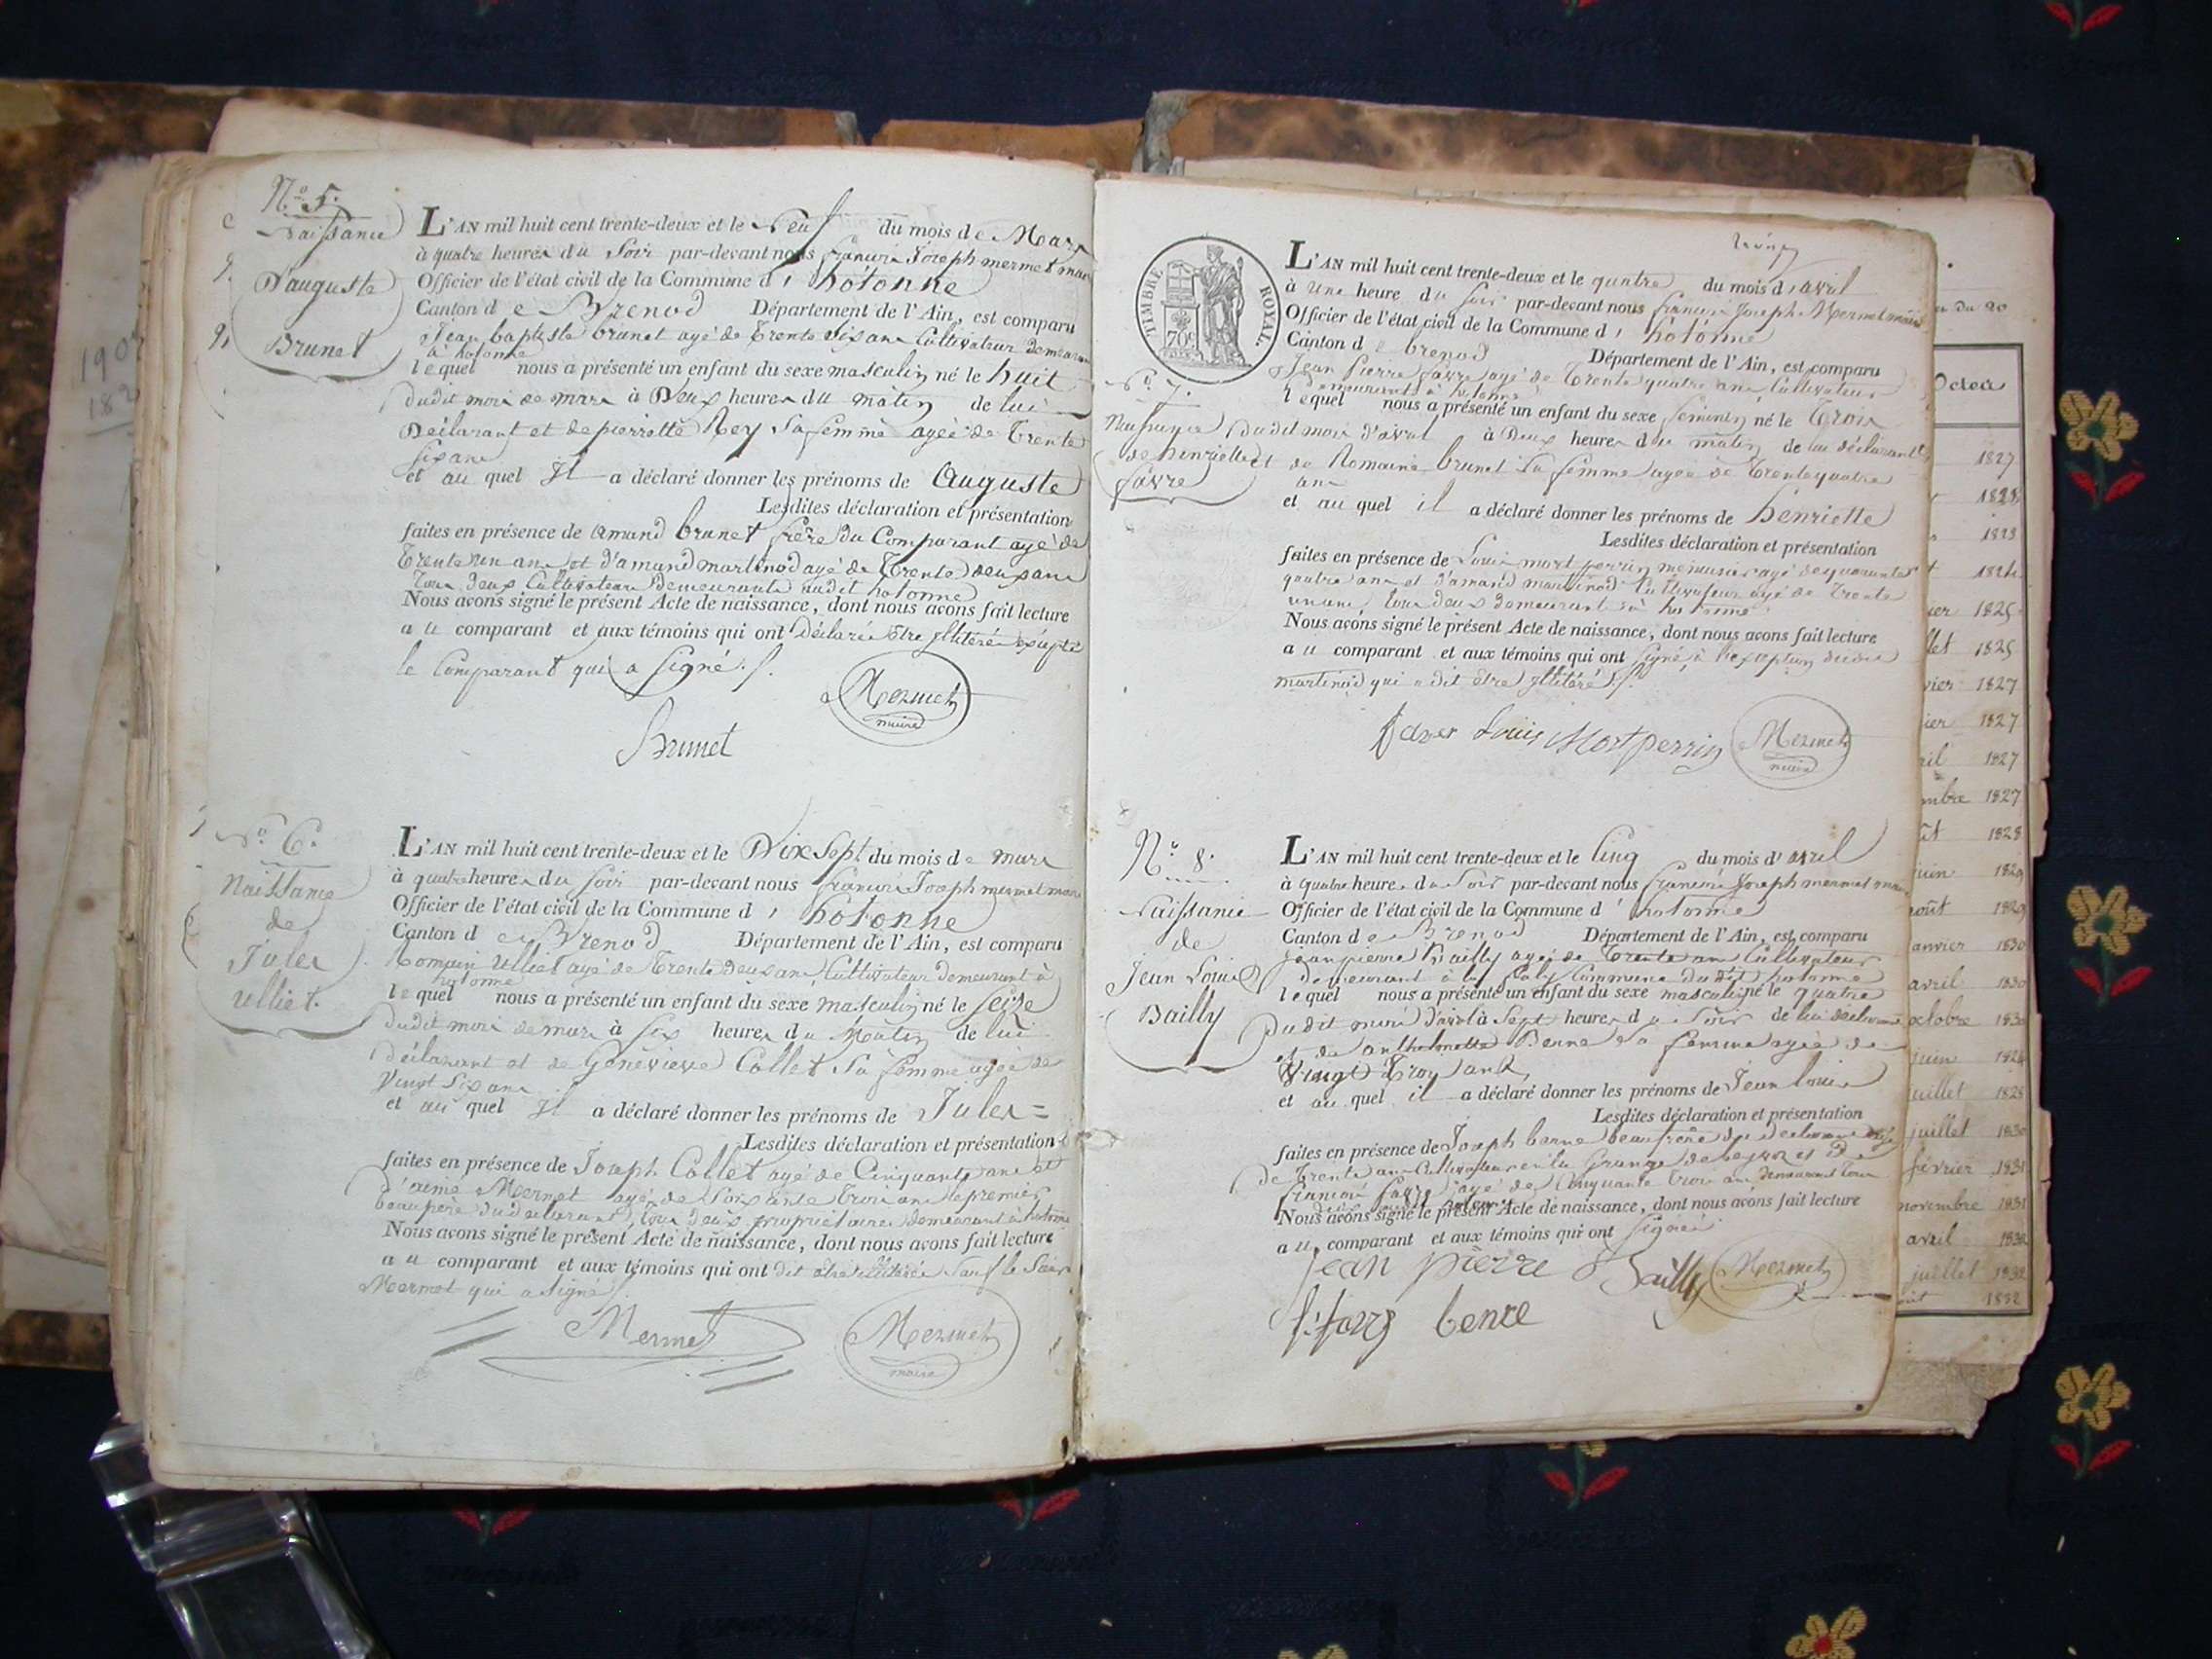 N.º 5.
Naissance
D'auguste
Brunet
L'AN mil huit cent trente-deux et le Neuf du mois de Mars
à quatre heures du Soir par-devant nous françois Joseph mermet maire
Officier de l'état civil de la Commune d' hotonne
Canton de Brenod Département de l'Ain, est comparu
Jean baptiste brunet agé de trente six ans Cultivateur demeurant
à hotonne
lequel nous a présenté un enfant du sexe masculin né le huit
dudit mois de mars à Deux heures du matin de lui
Déclarant et de pierrette Rey Sa femme agée de trente
six ans
et au quel Il a déclaré donner les prénoms de Auguste
Lesdites déclaration et présentation
faites en présence de amand brunet frère du Comparant agé de
trente un ans et d'amand martinod agé de trente deux ans
tous deux Cultivateurs Demeurants audit hotonne
Nous avons signé le présent Acte de naissance, dont nous avons fait lecture
au comparant et aux témoins qui ont Déclaré être illitéré excepté
le Comparant qui a signé ./.
Mermet
maire
Brunet
N.º 6.
Naissance
de
Jules
ulliet.
L'AN mil huit cent trente-deux et le Dix Sept du mois de mars
à quatre heures du soir par-devant nous françois Joseph mermet maire
Officier de l'état civil de la Commune d' hotonne
Canton de Brenod Département de l'Ain, est comparu
Romain ulliet agé de trente deux ans Cultivateur demeurant à
hotonne
lequel nous a présenté un enfant du sexe masculin né le seize
dudit mois de mars à six heures du Matin de lui
déclarant et de Geneviève Collet Sa femme agée de
Vingt Six ans
et au quel Il a déclaré donner les prénoms de Jules =
Lesdites déclaration et présentation
faites en présence de Joseph Collet agé de Cinquante ans et
d'aimé Mermet agé de Soixante trois ans le premier
beaupère du déclarant, tous deux propriétaires demeurant à hotonne
Nous avons signé le présent Acte de naissance, dont nous avons fait lecture
au comparant et aux témoins qui ont dit être illitérés Sauf le Sieur
Mermet qui a signé ./.
Mermet
Mermet
maire
TIMBRE ROYAL
70c
N.º 7.
Naissance
de henriette
favre
L'AN mil huit cent trente-deux et le quatre du mois d'avril
à Une heure du soir par-devant nous françois Joseph Mermet maire
Officier de l'état civil de la Commune d' hotonne
Canton de brenod Département de l'Ain, est comparu
Jean Pierre favre agé de trente quatre ans Cultivateur
Demeurant à hotonne
lequel nous a présenté un enfant du sexe feminin né le trois
dudit mois d'avril à Deux heures du matin de lui déclarant
et de Romaine brunet Sa femme agée de trente quatre
ans
et au quel il a déclaré donner les prénoms de henriette
Lesdites déclaration et présentation
faites en présence de Louis mort perrin menuisier agé de quarante
quatre ans et d'amand martinod Cultivateur agé de trente
un ans, tous deux demeurant à hotonne
Nous avons signé le présent Acte de naissance, dont nous avons fait lecture
au comparant et aux témoins qui ont signé, à l'exception dudit
martinod qui a dit être illitéré ./.
favre Louis Mortperrin
Mermet
maire
N.º 8.
Naissance
de
Jean Louis
Bailly
L'AN mil huit cent trente-deux et le Cinq du mois d'avril
à quatre heures du Soir par-devant nous françois Joseph mermet maire
Officier de l'état civil de la Commune d' hotonne
Canton de Brenod Département de l'Ain, est comparu
Jean pierre Bailly agé de trente ans Cultivateur
demeurant à Commune dudit hotonne
lequel nous a présenté un enfant du sexe masculin né le quatre
dudit mois d'avril à Sept heures du Soir de lui déclarant
et de anthelmette Benne Sa femme agée de
Vingt trois ans
et au quel il a déclaré donner les prénoms de Jean louis
Lesdites déclaration et présentation
faites en présence de Joseph benne beaufrère du déclarant agé
de trente ans Cultivateur en la Grange de et de
françois favre agé de Cinquante trois ans demeurant tous
Nous avons signé le présent Acte de naissance, dont nous avons fait lecture
au comparant et aux témoins qui ont signé
jean pierre Bailly
Mermet
benne
du 20
1827
1828
1823
1824
1825
1825
vier 1827
1827
1827
mbre 1827
1828
juin 1829
août 1829
janvier 1830
avril 1830
octobre 1830
juin
juillet
juillet 1830
février 1831
novembre 1831
avril 1832
juillet 1832
1832